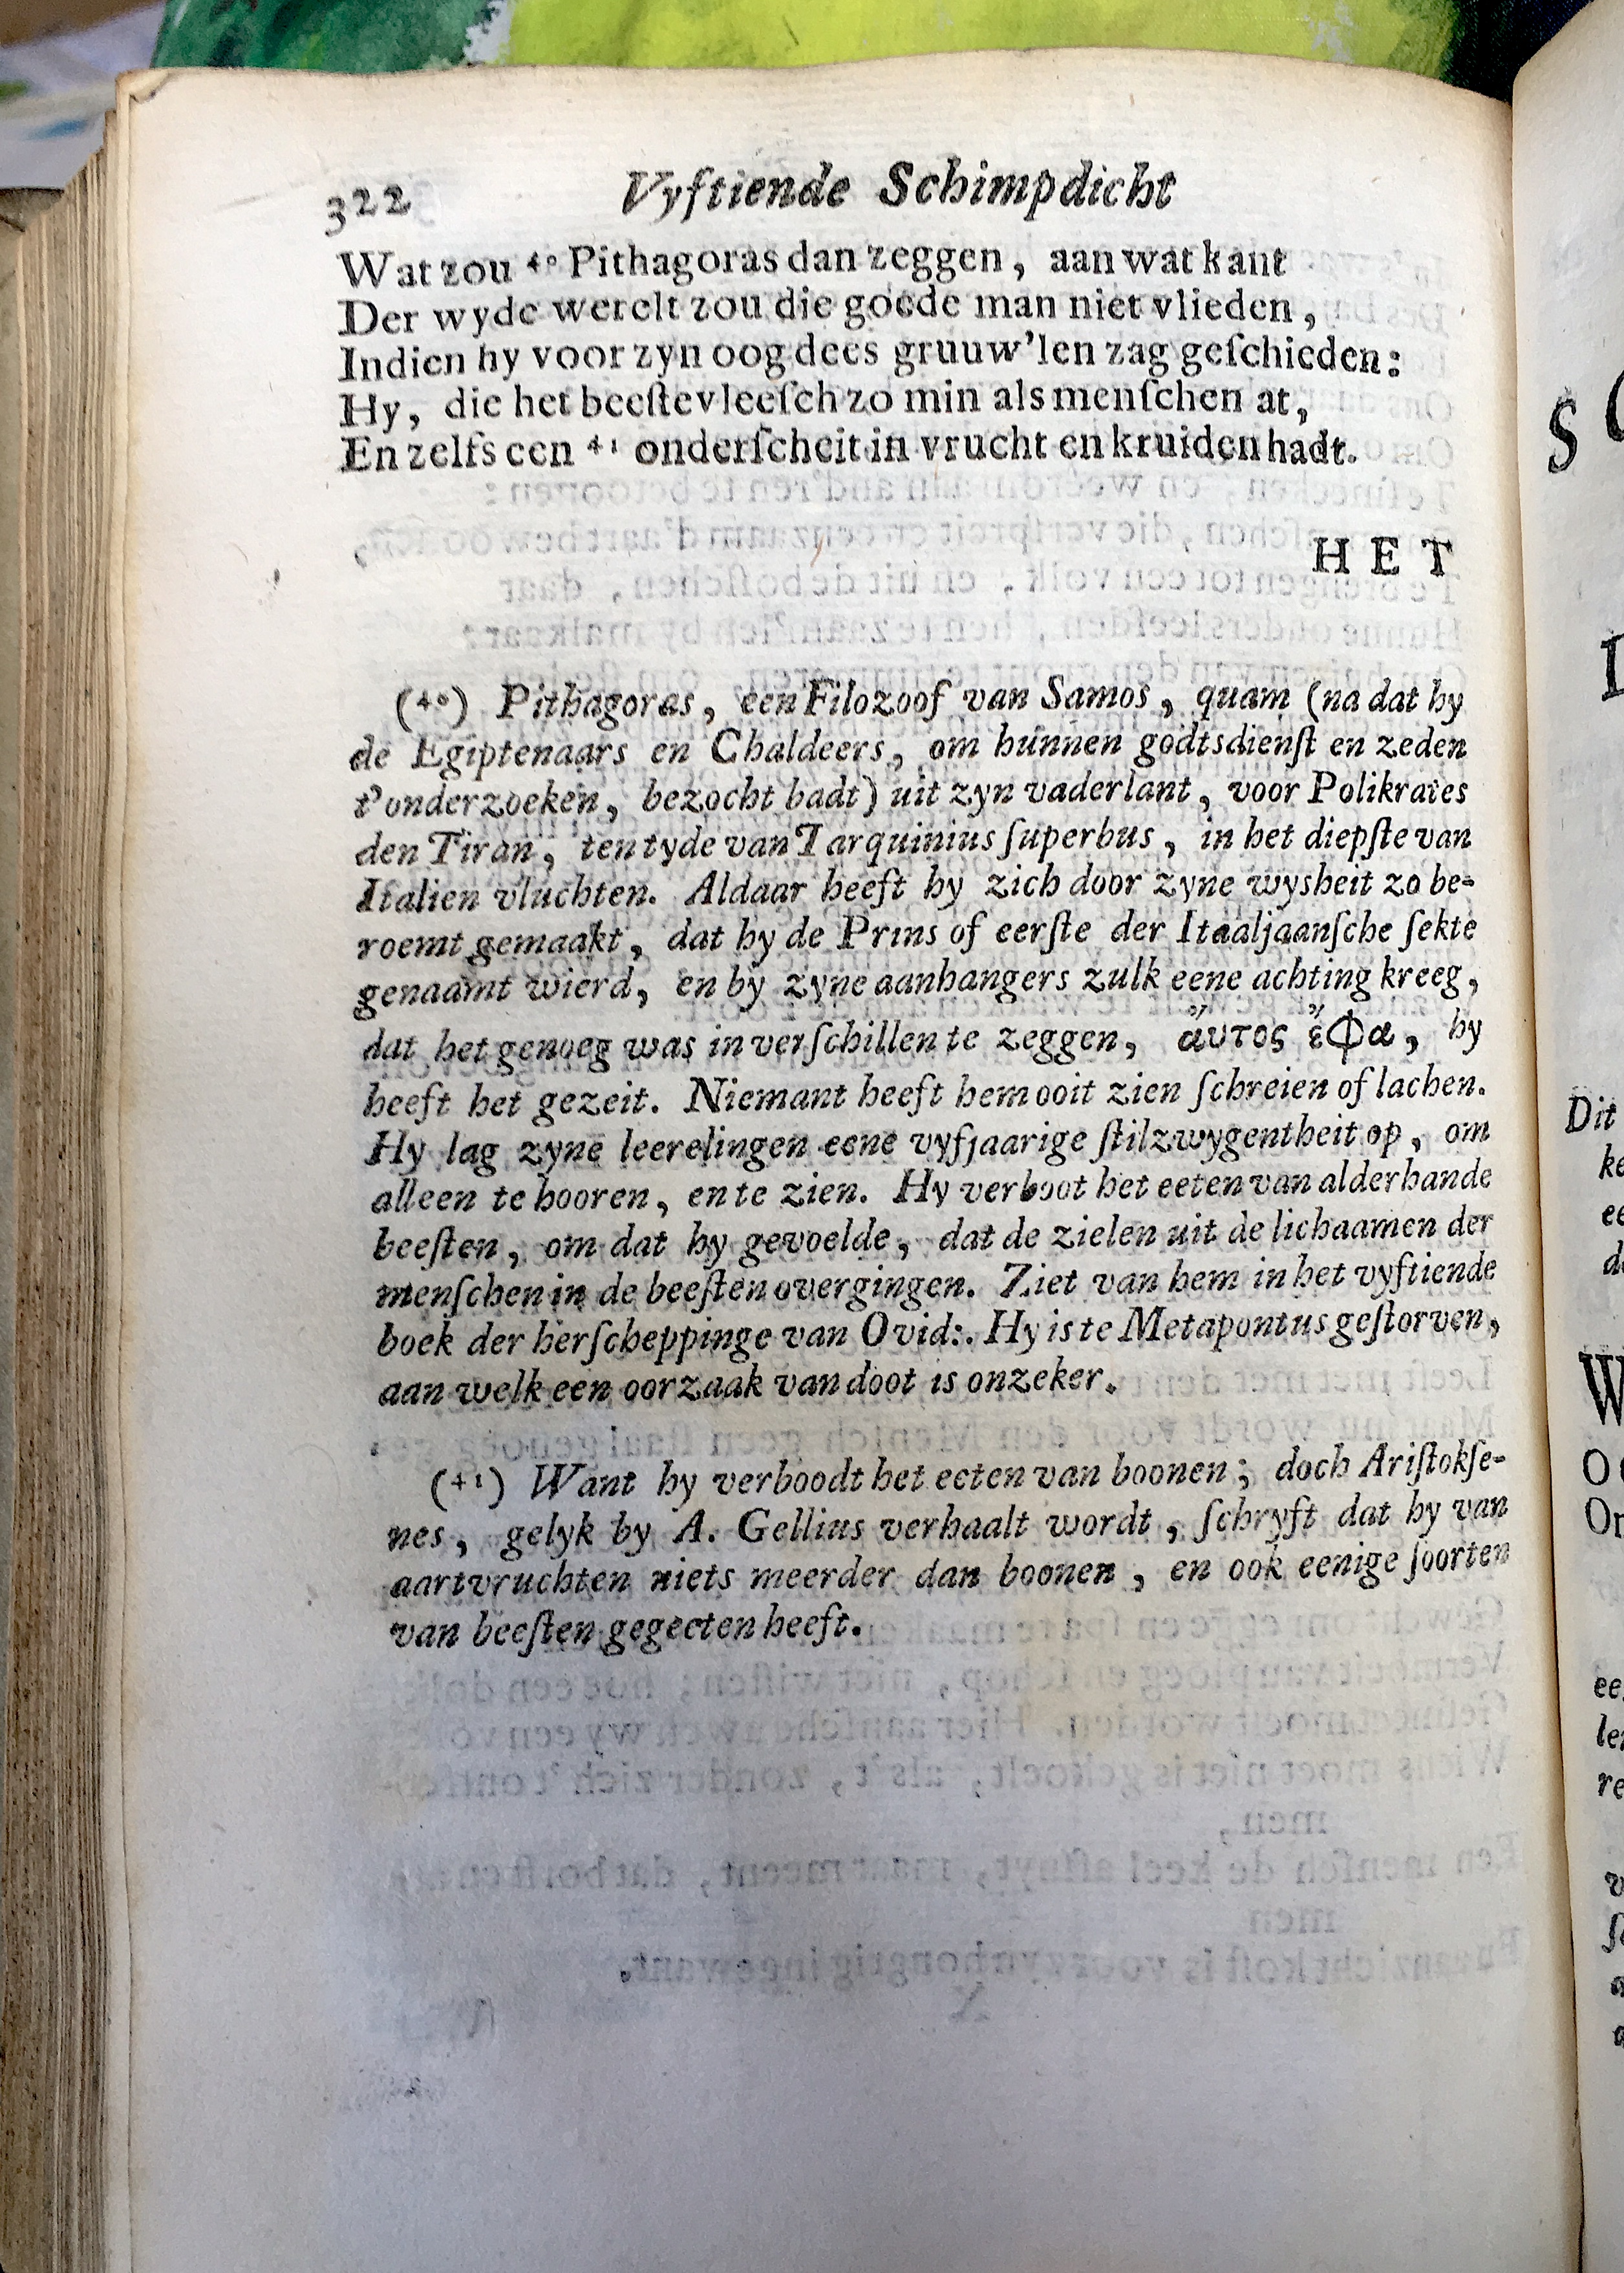 322 Vyftiende Schimpdicht
Wat zou ⁴⁰ Pithagoras dan zeggen, aan wat kant
Der wyde werelt zou die goede man niet vlieden,
Indien hy voor zyn oog dees gruuw'len zag geſchieden:
Hy, die het beeſtevleeſch zo min als menſchen at,
En zelfs een ⁴¹ onderſcheit in vrucht en kruiden hadt.
HET
(⁴⁰) Pithagoras, een Filozoof van Samos, quam (na dat hy
de Egiptenaars en Chaldeers, om hunnen godtsdienſt en zeden
t'onderzoeken, bezocht hadt) uit zyn vaderlant, voor Polikrates
den Tiran, ten tyde van Tarquinius ſuperbus, in het diepſte van
Italien vluchten. Aldaar heeft hy zich door zyne wysheit zo be-
roemt gemaakt, dat hy de Prins of eerſte der Itaaljaanſche ſekte
genaamt wierd, en by zyne aanhangers zulk eene achting kreeg,
dat het genoeg was in verſchillen te zeggen, ἄυτος ἔφα, hy
heeft het gezeit. Niemant heeft hem ooit zien ſchreien of lachen.
Hy lag zyne leerelingen eene vyfjaarige ſtilzwygentheit op, om
alleen te hooren, en te zien. Hy verboot het eeten van alderhande
beeſten, om dat hy gevoelde, dat de zielen uit de lichaamen der
menſchen in de beeſten overgingen. Ziet van hem in het vyftiende
boek der herſcheppinge van Ovid:. Hy is te Metapontus geſtorven,
aan welk een oorzaak van doot is onzeker.
(⁴¹) Want hy verboodt het eeten van boonen; doch Ariſtokſe-
nes, gelyk by A. Gellius verhaalt wordt, ſchryft dat hy van
aartvruchten niets meerder dan boonen, en ook eenige ſoorten
van beeſten gegeeten heeft.
Dit